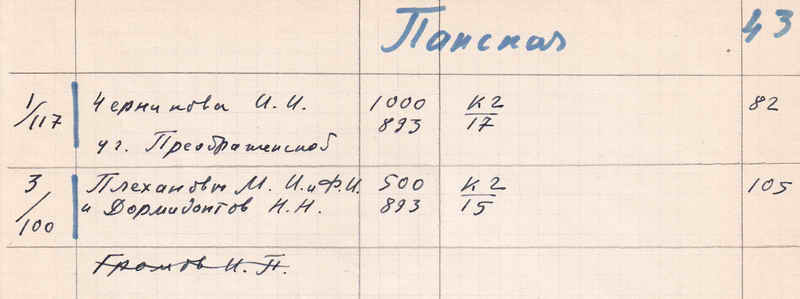 Панская 43
1/117 Черникова И. И. 1000 К2 82
893 17
уг. Преображенской
3/100 Плехановы М. И. и Ф. И. 500 К2 105
и Дормидонтов Н. Н. 893 15
Громов И. П.